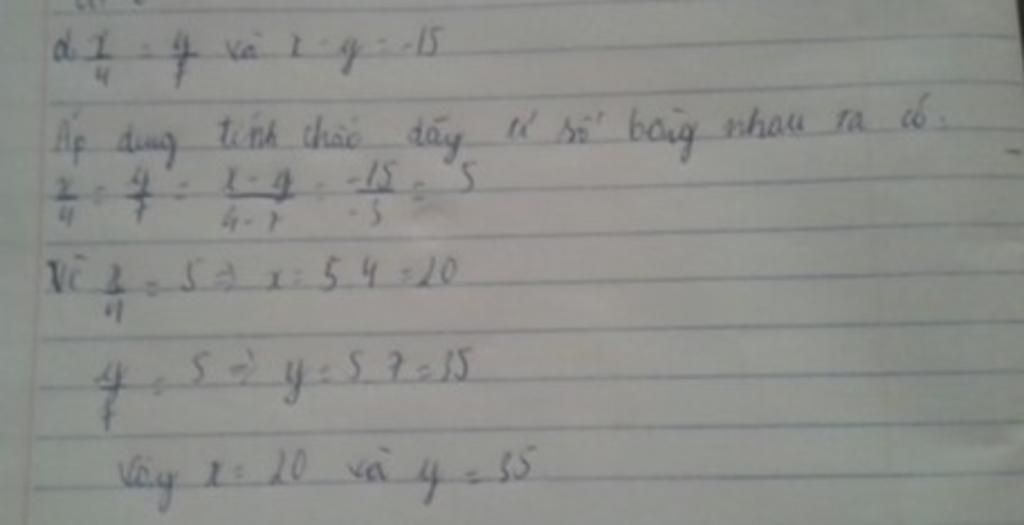 d. x/4 = y/7 và x - y = -15
Áp dụng tính chấc dãy tỉ số bằng nhau ta có:
x/4 = y/7 = x - y/4 - 7 = -15/-3 = 5
Vì x/4 = 5 => x = 5.4 = 20
y/7 = 5 => y = 5.7 = 35
Vậy x = 20 và y = 35